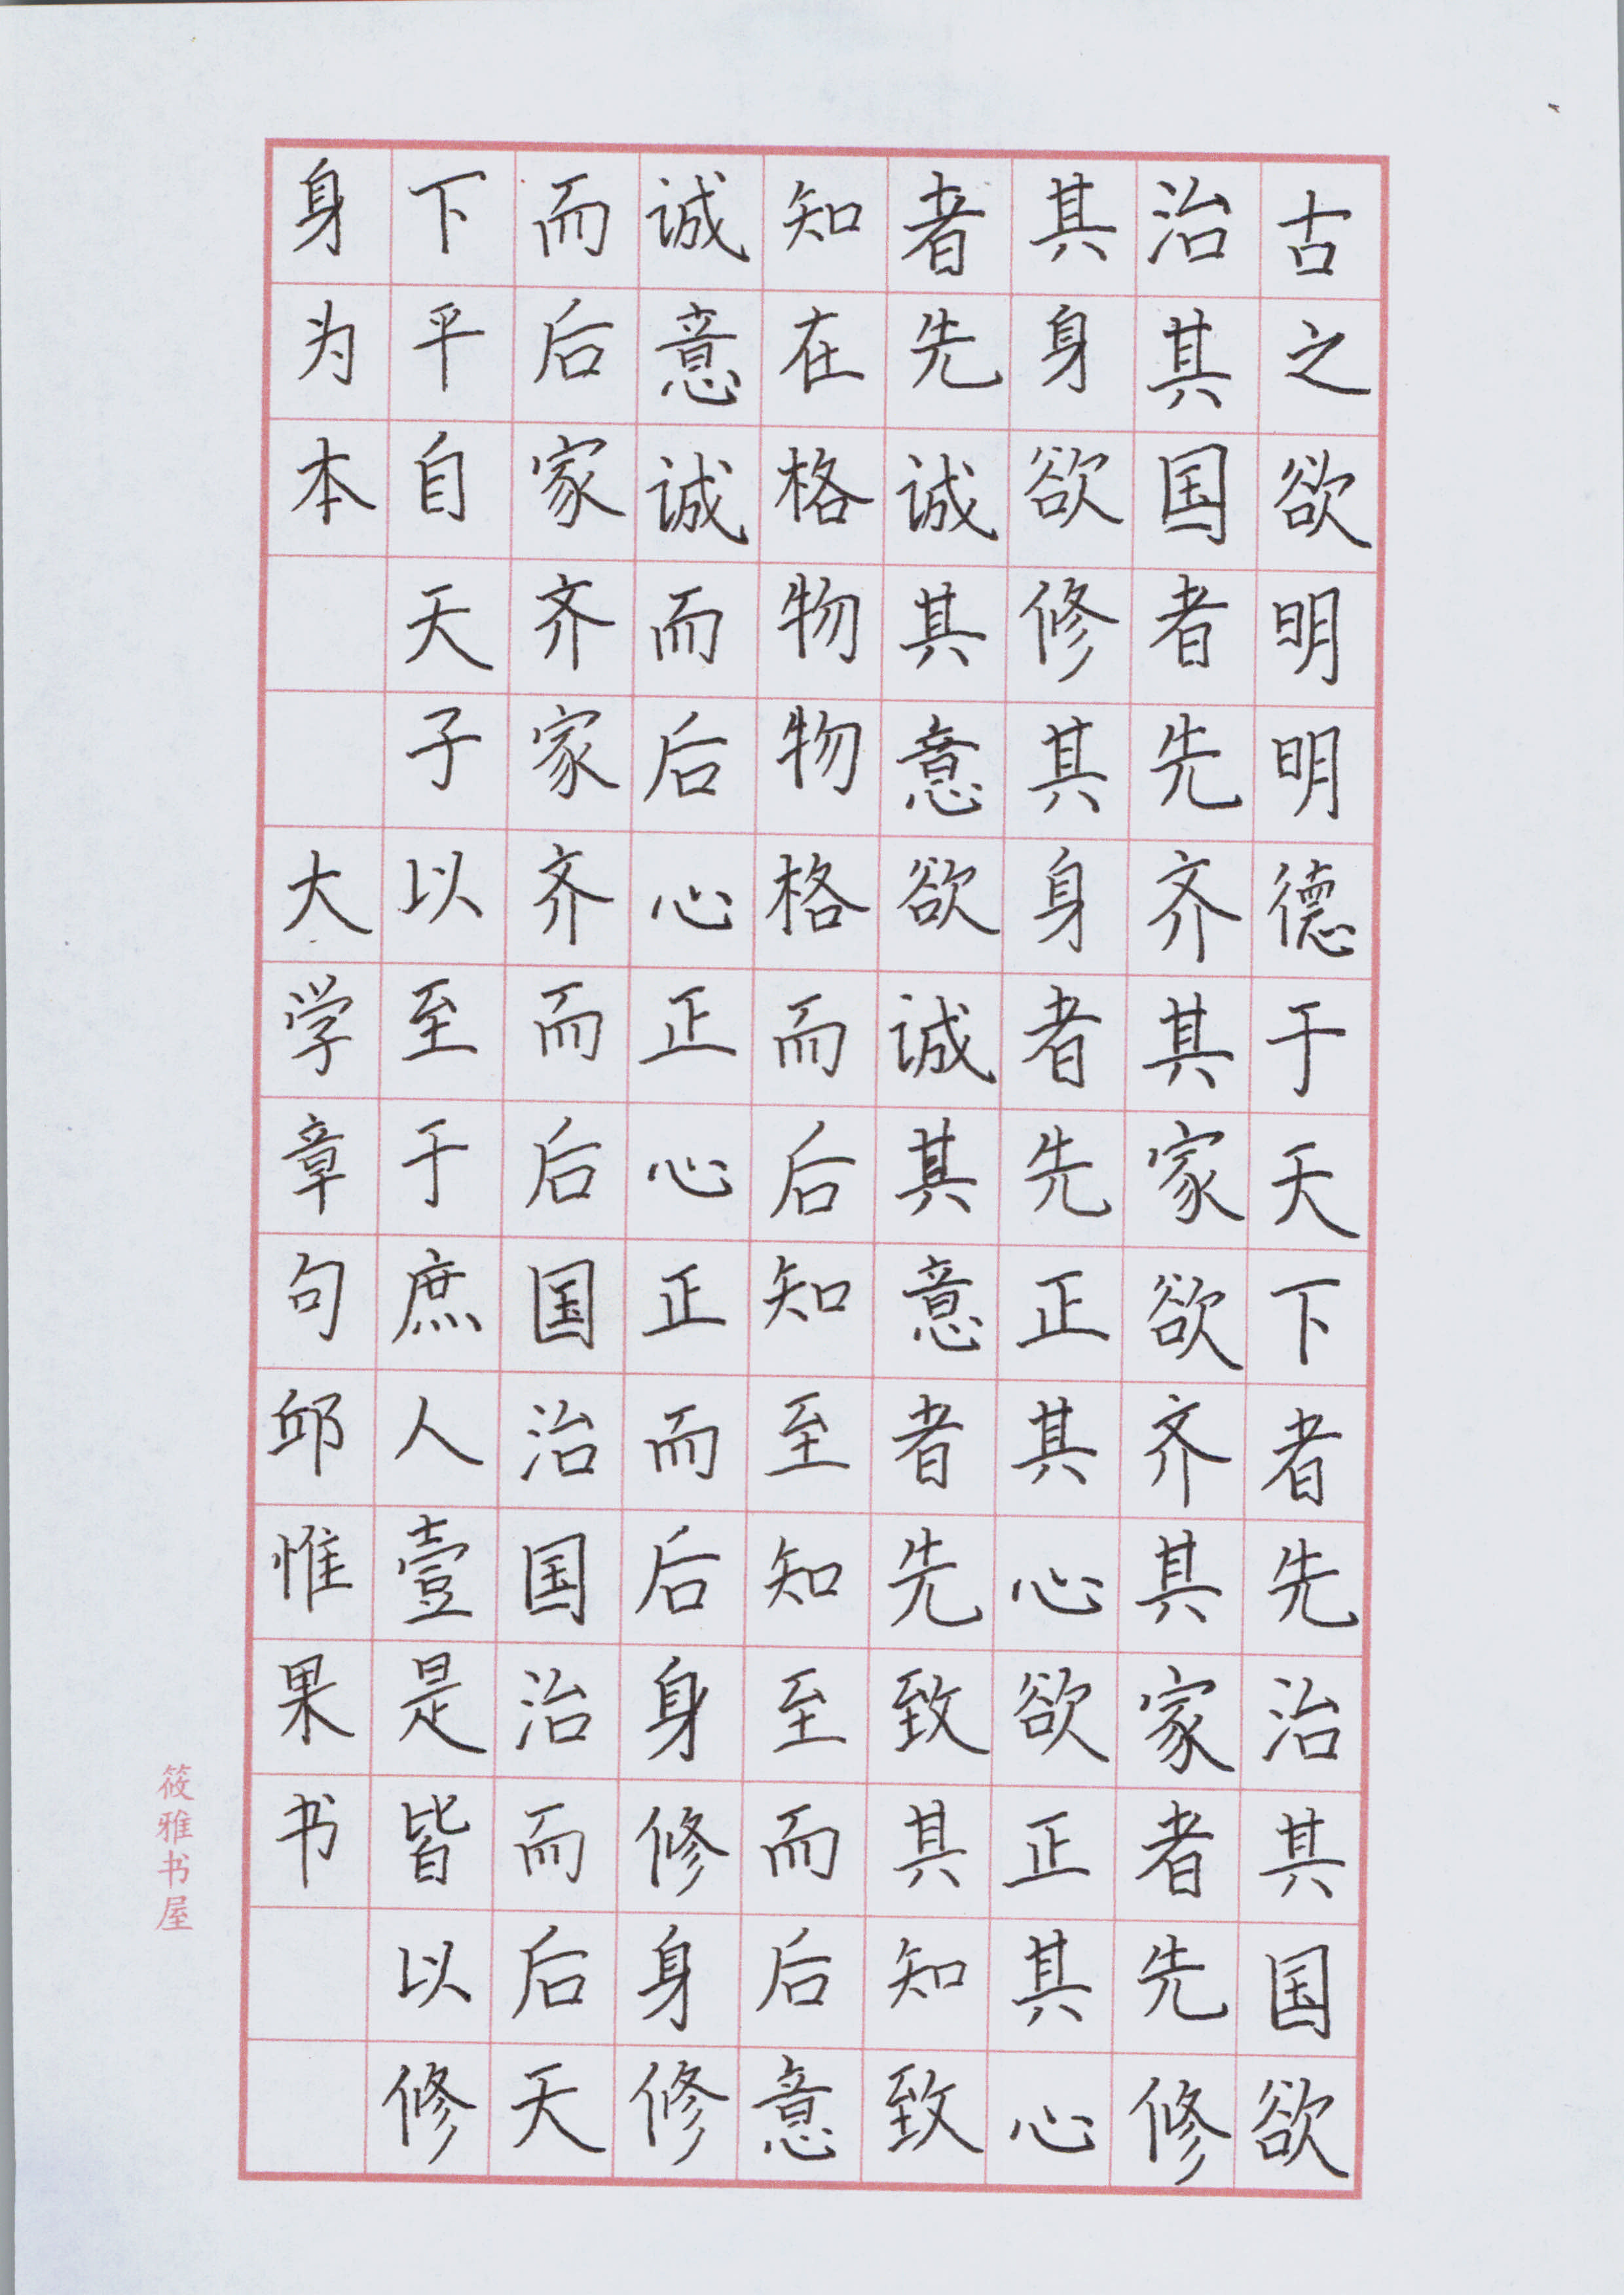 古之欲明明德于天下者先治其国欲
治其国者先齐其家欲齐其家者先修
其身欲修其身者先正其心欲正其心
者先诚其意欲诚其意者先致其知致
知在格物物格而后知至知至而后意
诚意诚而后心正心正而后身修身修
而后家齐家齐而后国治国治而后天
下平自天子以至于庶人壹是皆以修
身为本
大学章句邱惟果书
筱雅书屋